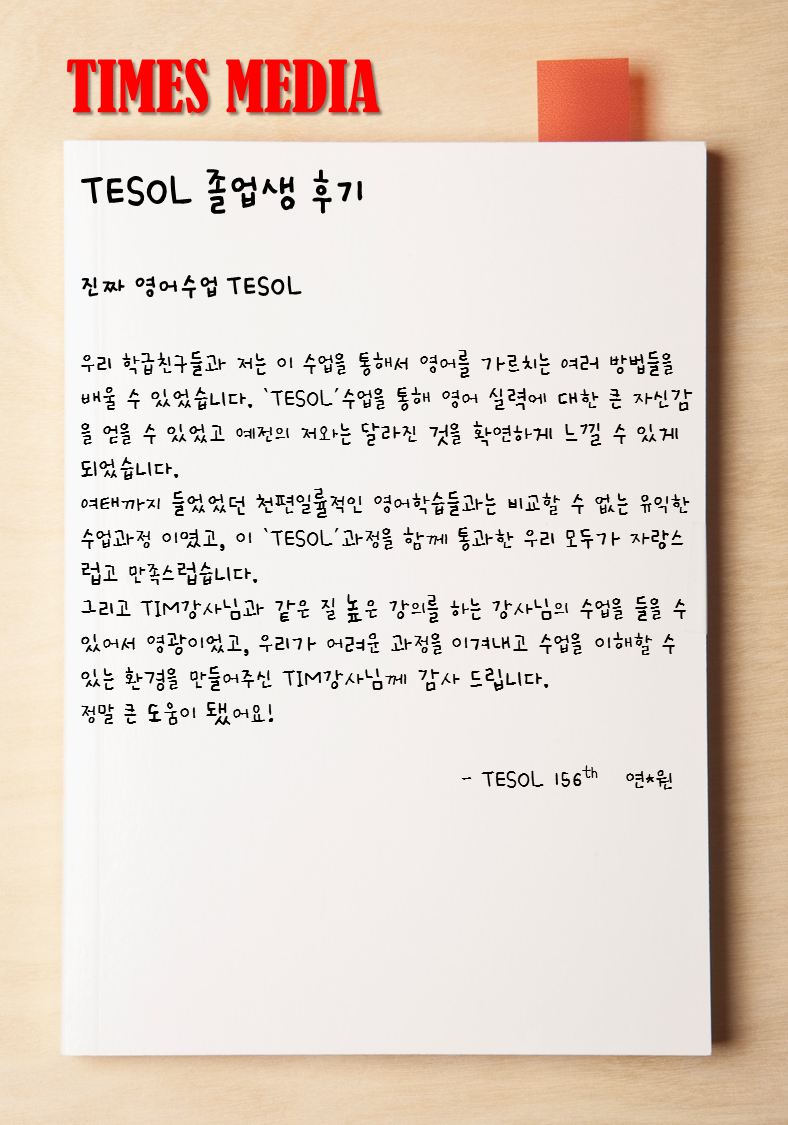 TIMES MEDIA
TESOL 졸업생 후기
진짜 영어수업 TESOL
우리 학급친구들과 저는 이 수업을 통해서 영어를 가르치는 여러 방법들을
배울 수 있었습니다. 'TESOL'수업을 통해 영어 실력에 대한 큰 자신감
을 얻을 수 있었고 예전의 저와는 달라진 것을 확연하게 느낄 수 있게
되었습니다.
여태까지 들었었던 천편일률적인 영어학습들과는 비교할 수 없는 유익한
수업과정 이였고, 이 'TESOL'과정을 함께 통과한 우리 모두가 자랑스
럽고 만족스럽습니다.
그리고 TIM강사님과 같은 질 높은 강의를 하는 강사님의 수업을 들을 수
있어서 영광이었고, 우리가 어려운 과정을 이겨내고 수업을 이해할 수
있는 환경을 만들어주신 TIM강사님께 감사 드립니다.
정말 큰 도움이 됐어요!
- TESOL 156th 연*원